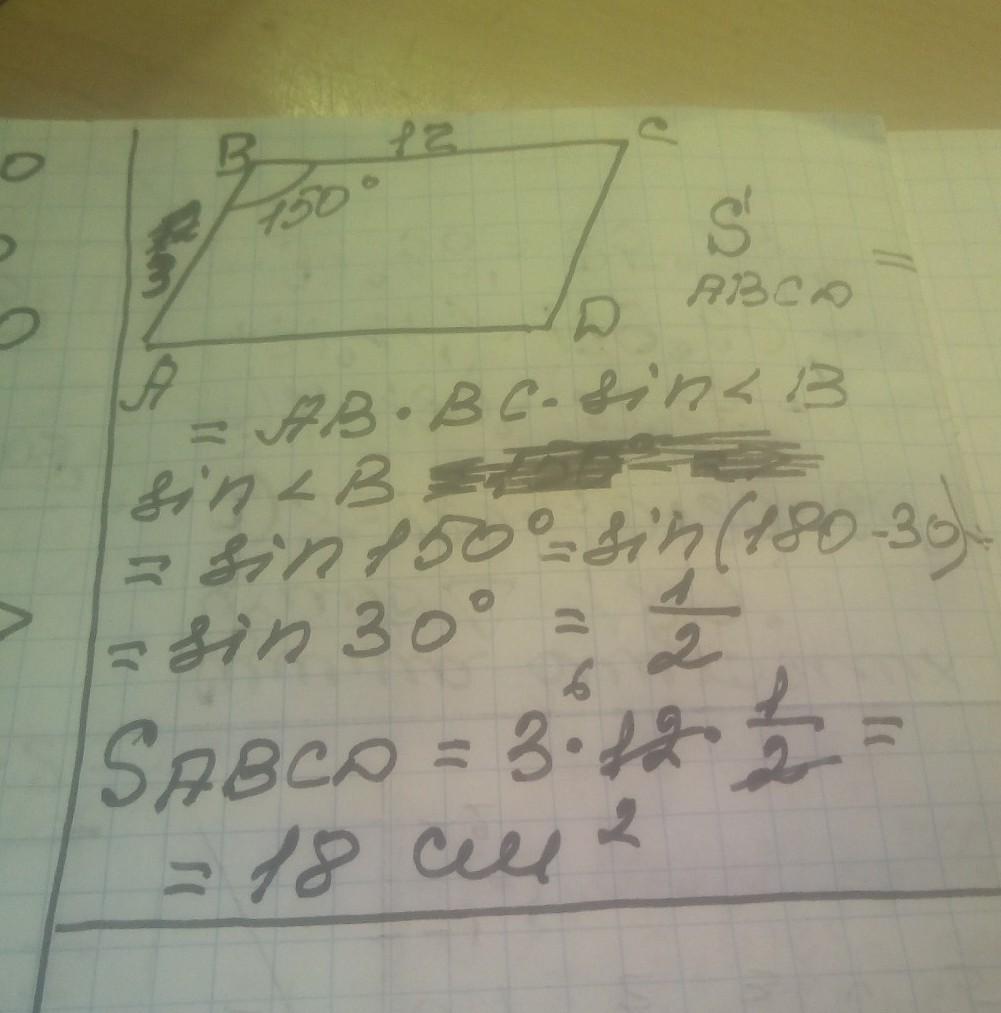 B 12 C
150°
3
A D
S ABCD =
= AB · BC · sin < B
sin < B
= sin 150° = sin(180 - 30) =
= sin 30° = 1/2
6
SABCD = 3 · 12 · 1/2 =
= 18 см²